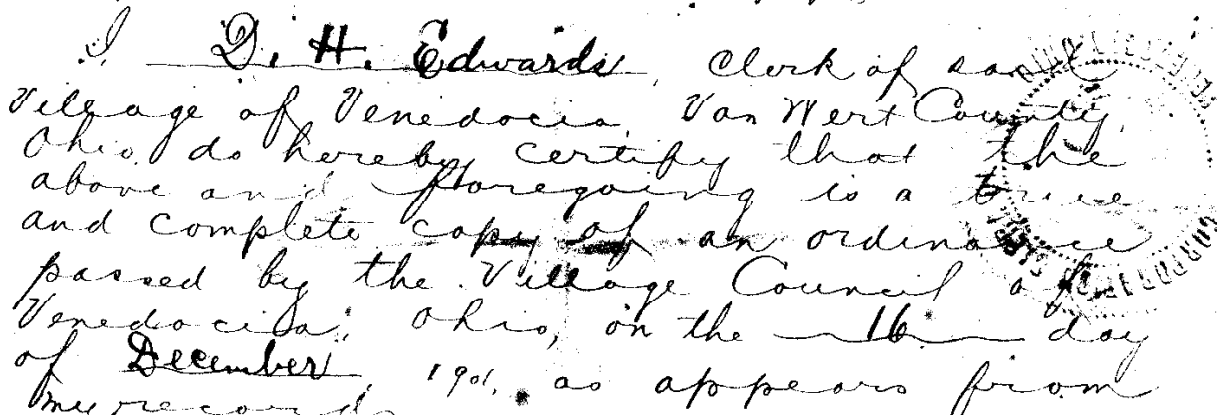 I D. H. Edwards, Clerk of said
Village of Venedocia, Van Wert County,
Ohio, do hereby certify that the
above and foregoing is a true
and complete copy of an ordinance
passed by the Village Council of
Venedocia, Ohio, on the 16 day
of December, 1901, as appears from
my records